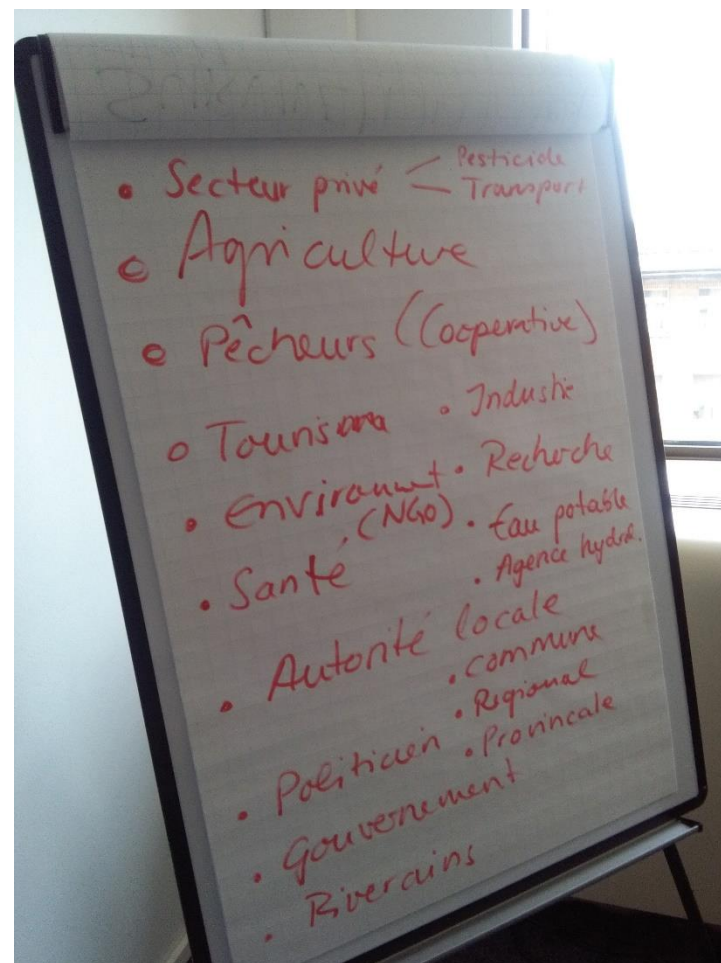 • Secteur privé < Pesticide
– Transport
• Agriculture
• Pêcheurs (Cooperative)
• Tourisme • Industie
• Environnmt • Recherche
(NGO) • Eau potable
• Santé • Agence hydrol.
• Autorité locale
• Commune
• Regional
• Politicien • Provincale
• Gouvernement
• Riverains